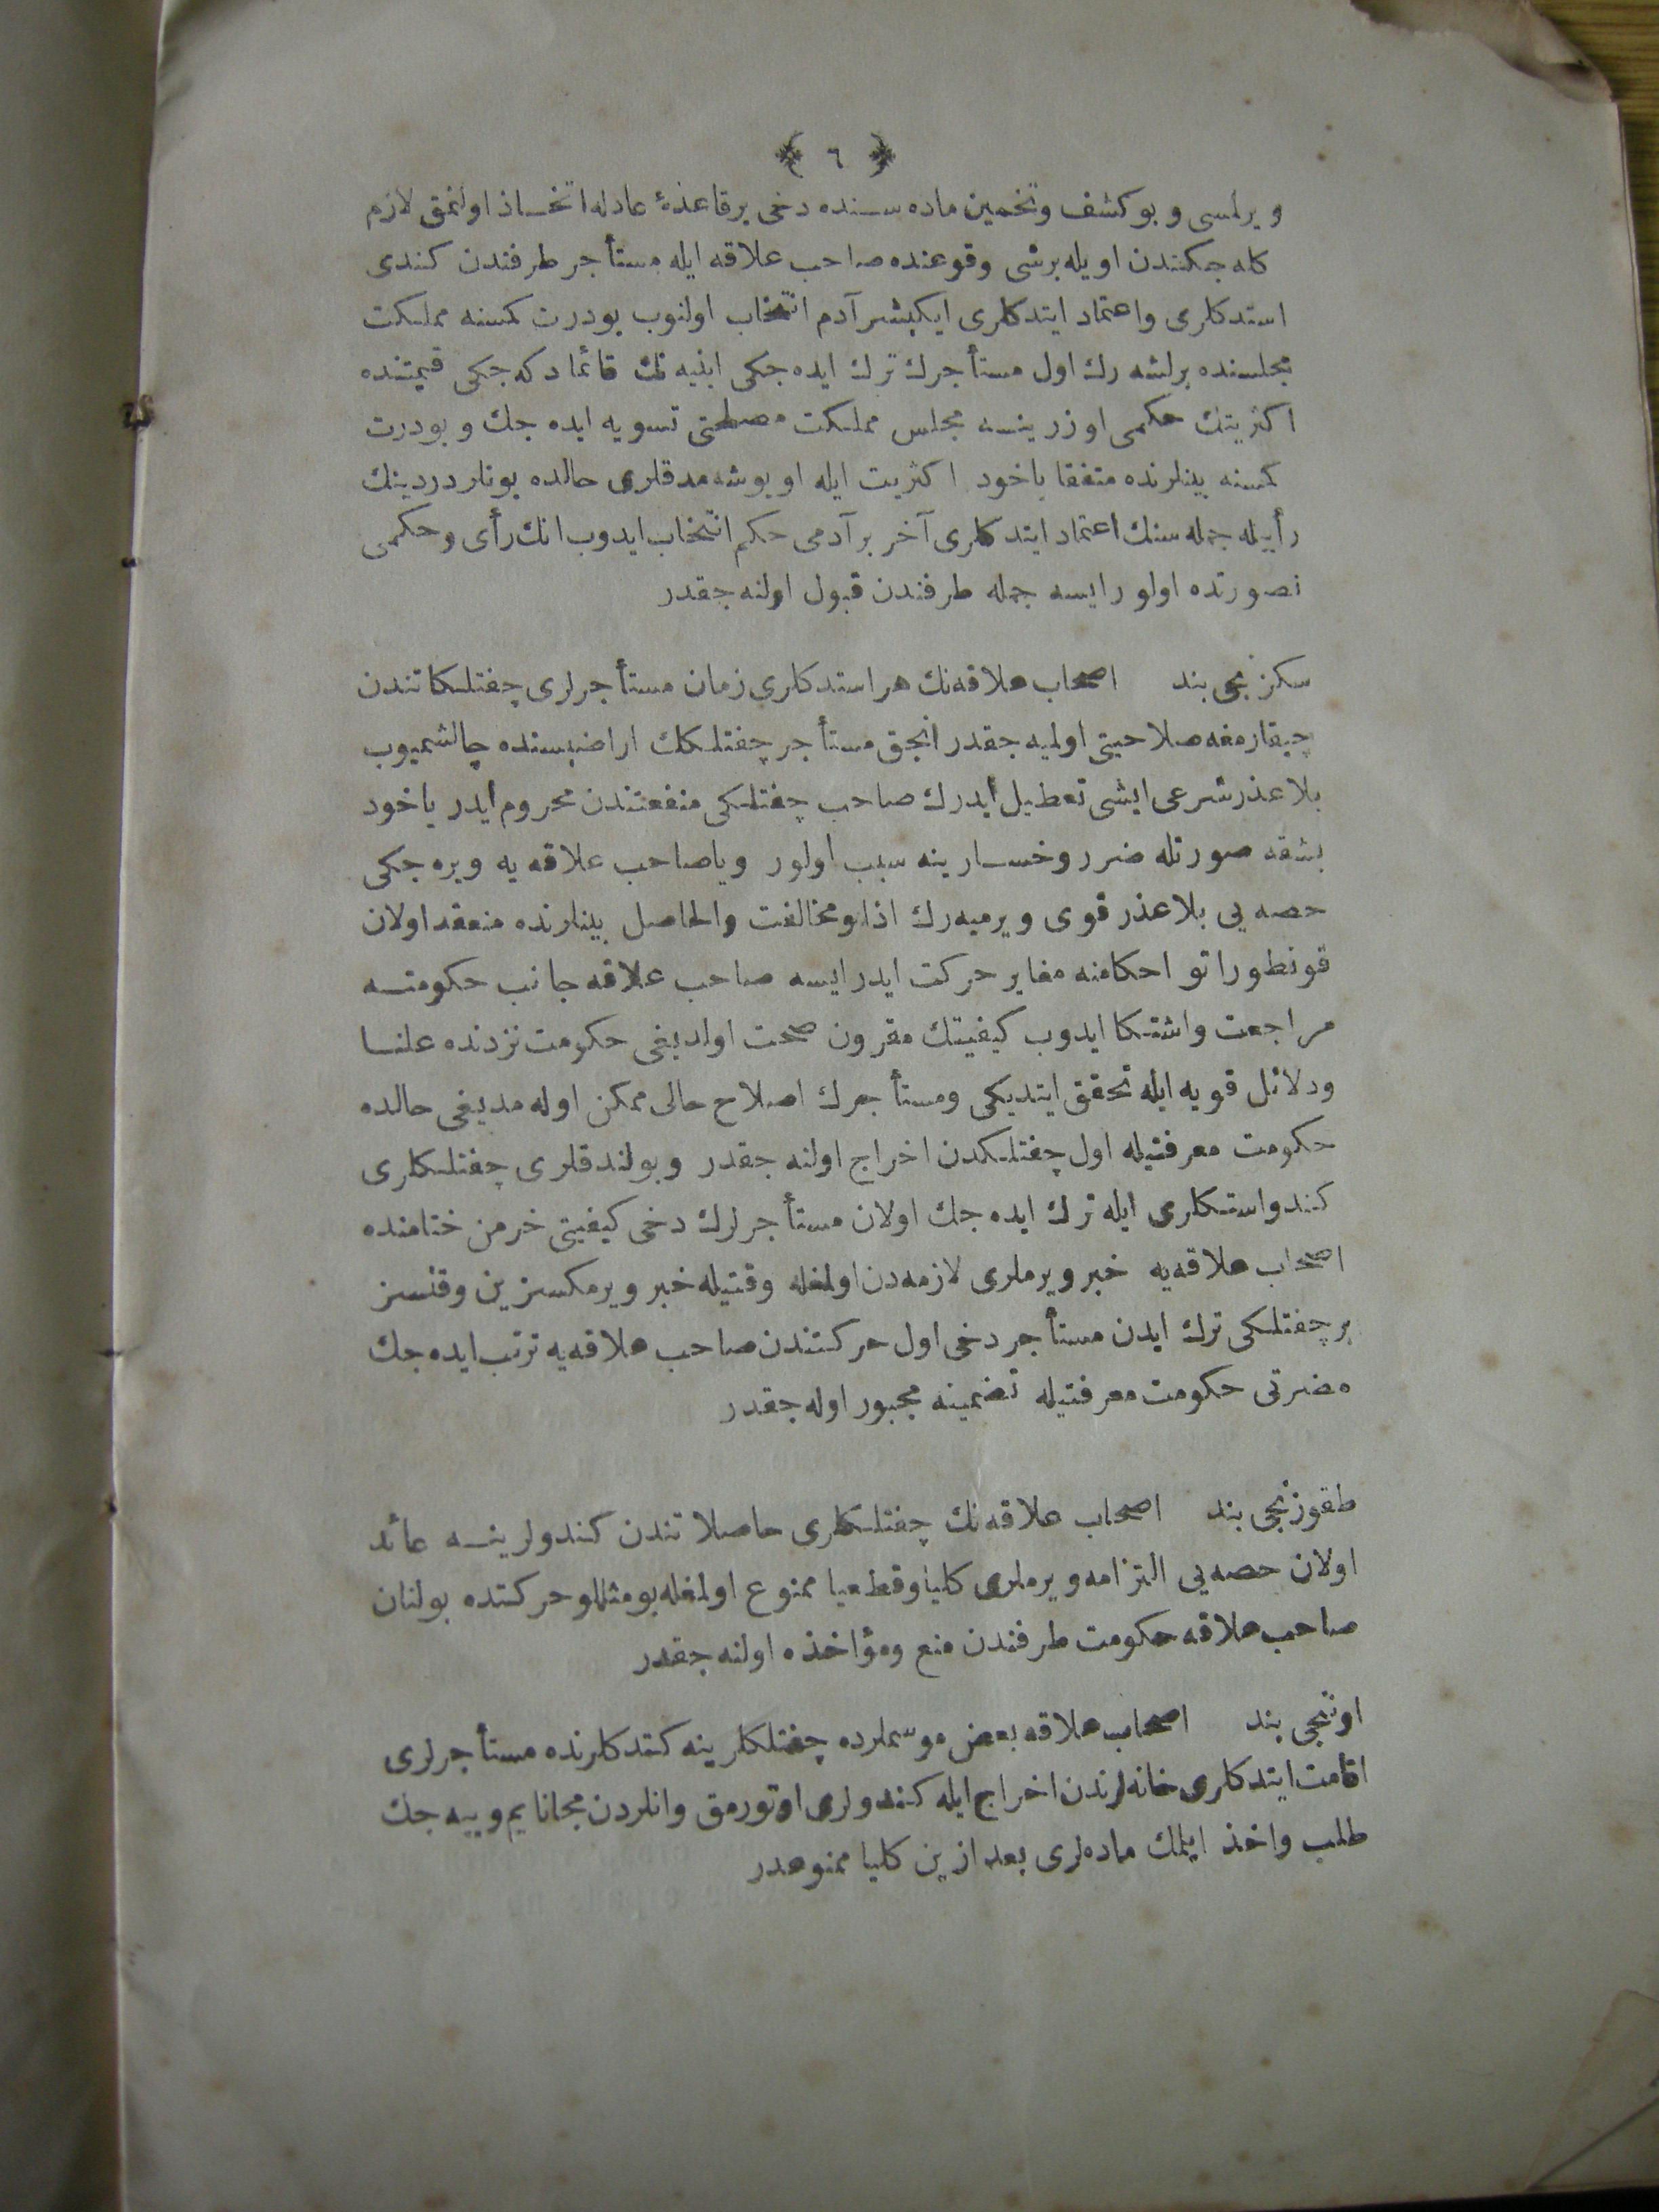 ﴿ ٦ ﴾
ويرلمسى و بو كشف وتخمين ماده سنده دخى برقاعدۀ عادله اتخاذ اولنمق لازم
كله جكندن اويله برشى وقوعنده صاحب علاقه ايله مستأجر طرفندن كندى
استدكلرى واعتماد ايتدكلرى ايكيشر آدم انتخاب اولنوب بودرت كمسنه مملكت
مجلسنده برلشه رك اول مستأجرك ترك ايده جكى ابنيه نك قائما دكه جكى قيمتنده
اكثريتك حكمى اوزرينه مجلس مملكت مصلحتى تسويه ايده جك و بودرت
كمسنه بينلرنده متفقا ياخود اكثريت ايله اويوشه مدقلرى حالده بونلر دردينك
رأييله جمله سنك اعتماد ايتدكلرى آخر بر آدمى حكم انتخاب ايدوب انك رأى وحكمى
نصورتده اولور ايسه جمله طرفندن قبول اولنه جقدر
سكزنجى بند اصحاب علاقه نك هر استدكلرى زمان مستأجرلرى چفتلكاتندن
چيقارمغه صلاحيتى اوليه جقدر انجق مستأجر چفتلكك اراضيسنده چالشميوب
بلا عذر شرعى ايشى تعطيل ايدرك صاحب چفتلكى منفعتندن محروم ايدر ياخود
بشقه صورتله ضرر وخسارينه سبب اولور وياصاحب علاقه يه ويره جكى
حصه يى بلا عذر قوى ويرميه رك اذا ومخالفت والحاصل بينلرنده منعقد اولان
قونطوراتو احكامنه مغاير حركت ايدر ايسه صاحب علاقه جانب حكومته
مراجعت واشتكا ايدوب كيفيتك مقرون صحت اولديغى حكومت نزدنده علنا
ودلائل قويه ايله تحقق ايتديكى ومستأجرك اصلاح حالى ممكن اوله مديغى حالده
حكومت معرفتيله اول چفتلكدن اخراج اولنه جقدر وبولندقلرى چفتلكلرى
كندواستكلرى ايله ترك ايده جك اولان مستأجرلرك دخى كيفيتى خرمن ختامنده
اصحاب علاقه يه خبر ويرملرى لازمه دن اولمغله وقتيله خبر ويرمكسزين وقتسز
بر چفتلكى ترك ايدن مستأجر دخى اول حركتندن صاحب علاقه يه ترتب ايده جك
مضرتى حكومت معرفتيله تضمينه مجبور اوله جقدر
طقوزنجى بند اصحاب علاقه نك چفتلكلرى حاصلاتندن كندولرينه عائد
اولان حصه يى التزامه ويرملرى كليا وقطعيا ممنوع اولمغله بومثللو حركتده بولنان
صاحب علاقه حكومت طرفندن منع ومؤاخذه اولنه جقدر
اوننجى بند اصحاب علاقه بعض موسملرده چفتلكلرينه كتدكلرنده مستأجرلرى
اقامت ايتدكلرى خانه لرندن اخراج ايله كندولرى اوتورمق وانلردن مجانا يم وييه جك
طلب واخذ ايلمك ماده لرى بعد ازين كليا ممنوعدر